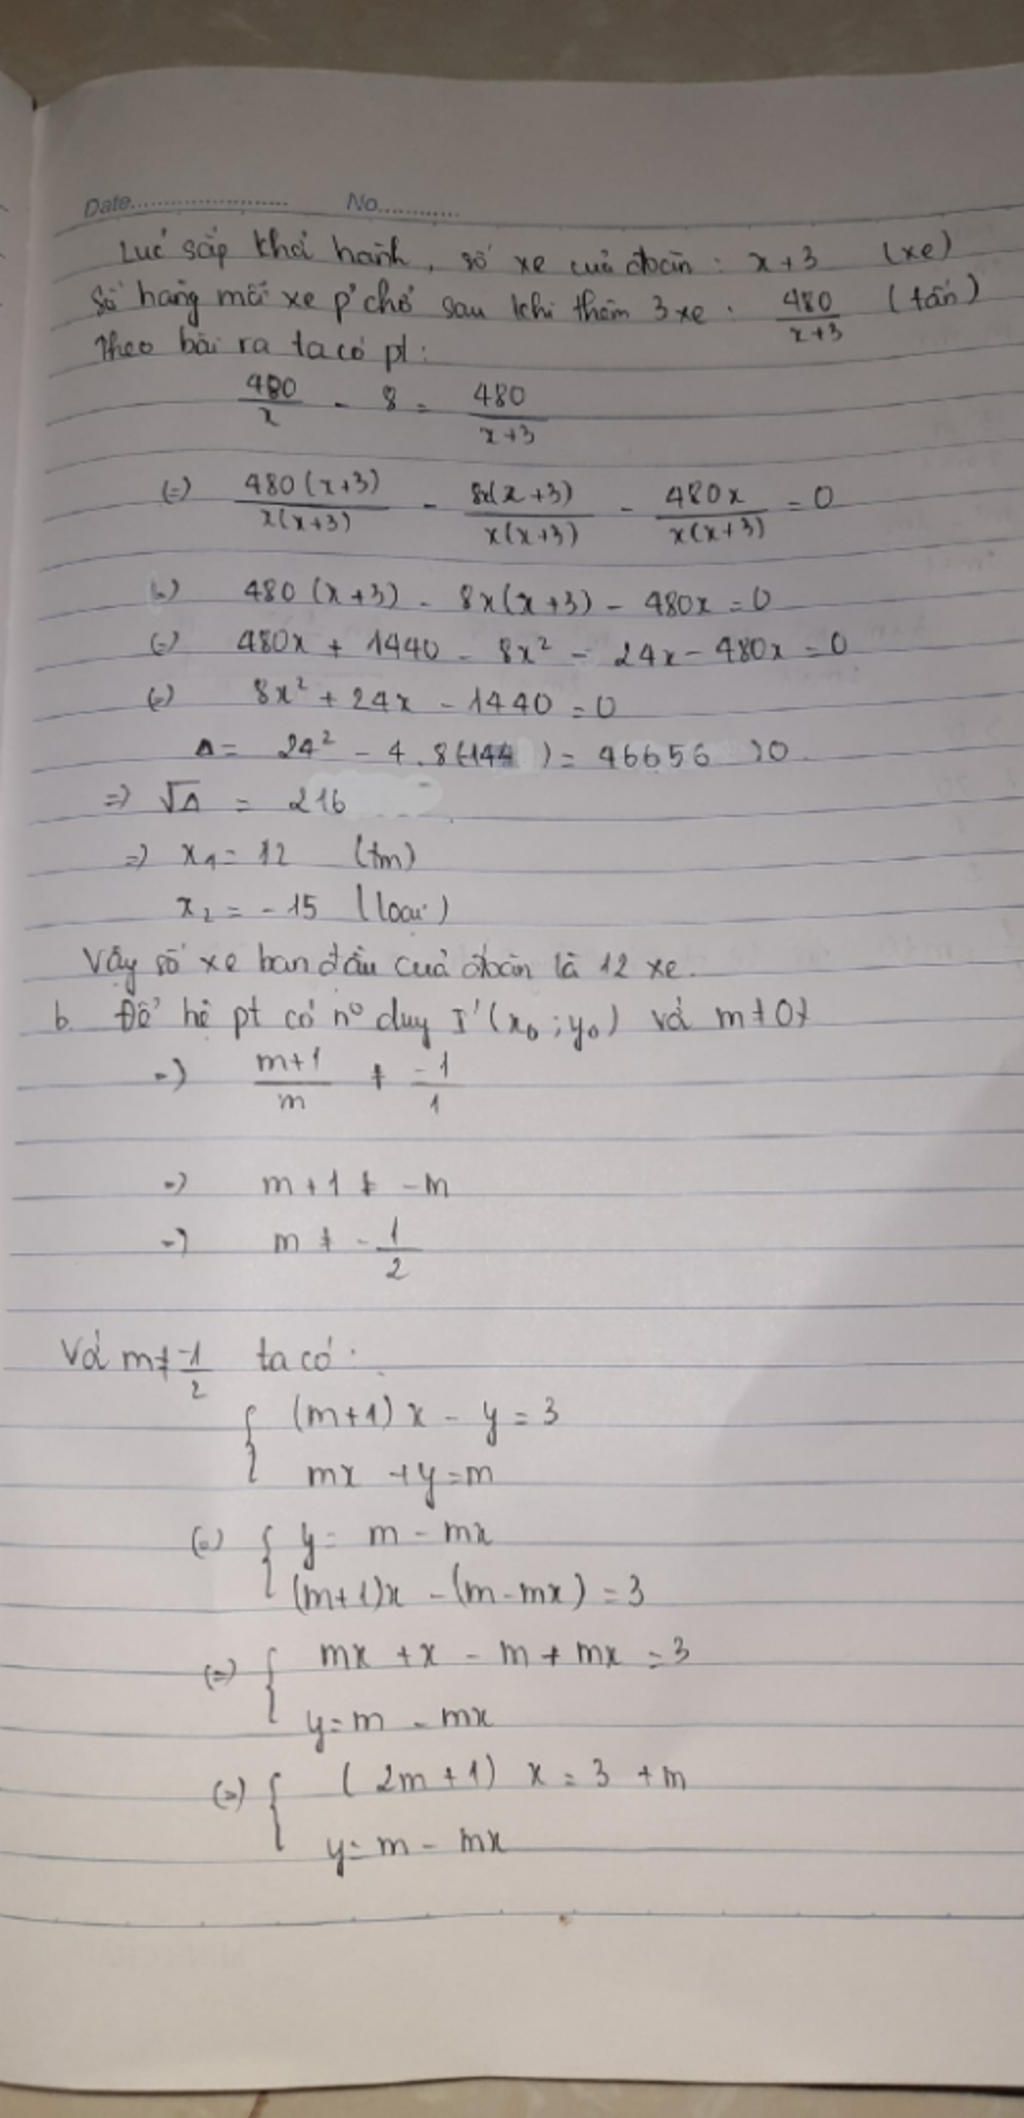 Date............ No............
Lúc sắp khởi hành, số xe của đoàn : x+3 (xe)
Số hàng mỗi xe p' chở sau khi thêm 3 xe : 480/(x+3) (tấn)
Theo bài ra ta có pt :
480/x - 8 = 480/(x+3)
(=) 480(x+3)/x(x+3) - 8x(x+3)/x(x+3) - 480x/x(x+3) = 0
(=) 480(x+3) - 8x(x+3) - 480x = 0
(=) 480x + 1440 - 8x² - 24x - 480x = 0
(=) 8x² + 24x - 1440 = 0
Δ = 24² - 4.8(-144 ) = 46656 >0
=) √Δ = 216
=) x₁ = 12 (tm)
x₂ = -15 (loại)
Vậy số xe ban đầu của đoàn là 12 xe.
b. Để hệ pt có nº duy I' (x₀ ; y₀) với m≠0
=) (m+1)/m ≠ -1/1
=) m+1 ≠ -m
=) m ≠ -1/2
Với m≠ -1/2 ta có :
{ (m+1)x - y = 3
mx + y = m
(=) { y = m - mx
(m+1)x - (m-mx) = 3
(=) { mx + x - m + mx = 3
y = m - mx
(=) { (2m+1) x = 3 + m
y = m - mx